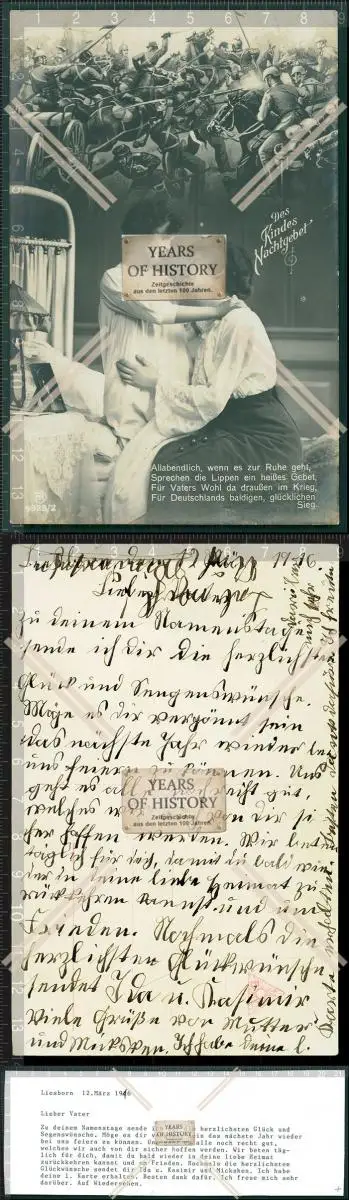 YEARS
OF HISTORY
Zeitgeschichte
aus den letzten 100 Jahren.
Des
Kindes
Nachtgebet
Allabendlich, wenn es zur Ruhe geht,
Sprechen die Lippen ein heißes Gebet,
Für Vaters Wohl da draußen im Krieg,
Für Deutschlands baldigen, glücklichen
Sieg.
12. März 1916.
Lieber Vater
Zu deinem Namenstage
sende ich dir die herzlichsten
Glück und Segenswünsche.
Möge es dir vergönnt sein
das nächste Jahr wieder bei
uns feiern zu können. Uns
geht es alle noch recht gut,
welches wir auch von dir si
cher hoffen werden. Wir beten
täglich für dich, damit du bald wie
der in deine liebe Heimat zu
rückkehren kannst und um
Frieden. Nochmals die
herzlichsten Glückwünsche
sendet Ida u. Kasimir
Viele Grüße von Mutter
und Mieksken. Ich habe deine l.
Karte erhalten.
YEARS
OF HISTORY
Zeitgeschichte
aus den letzten 100 Jahren.
Liesborn 12.März 1916
Lieber Vater
Zu deinem Namenstage sende herzlichsten Glück und
Segenswünsche. Möge es dir ein das nächste Jahr wieder
bei uns feiern zu können. Uns alle noch recht gut,
welches wir auch von dir sicher hoffen werden. Wir beten täg-
lich für dich, damit du bald wieder in deine liebe Heimat
zurückkehren kannst und um Frieden. Nochmals die herzlichsten
Glückwünsche sendet dir Ida u. Kasimir und Mieksken. Ich habe
deine l. Karte erhalten. Besten dank dafür. Ich freue mich sehr
darüber. Auf Wiedersehen.
YEARS
OF HISTORY